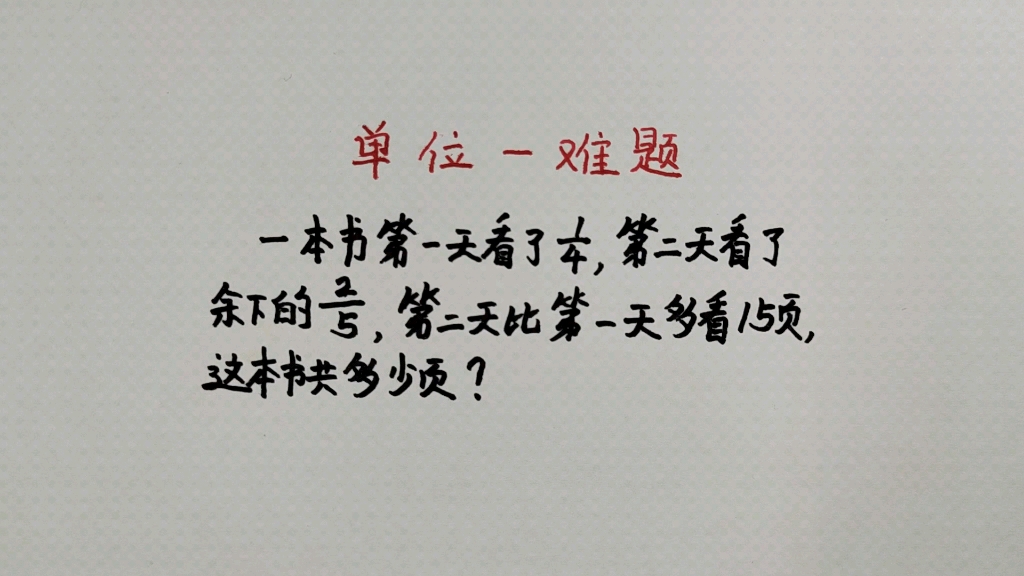 单位一难题
一本书第一天看了1/4,第二天看了
余下的2/5,第二天比第一天多看15页,
这本书共多少页?